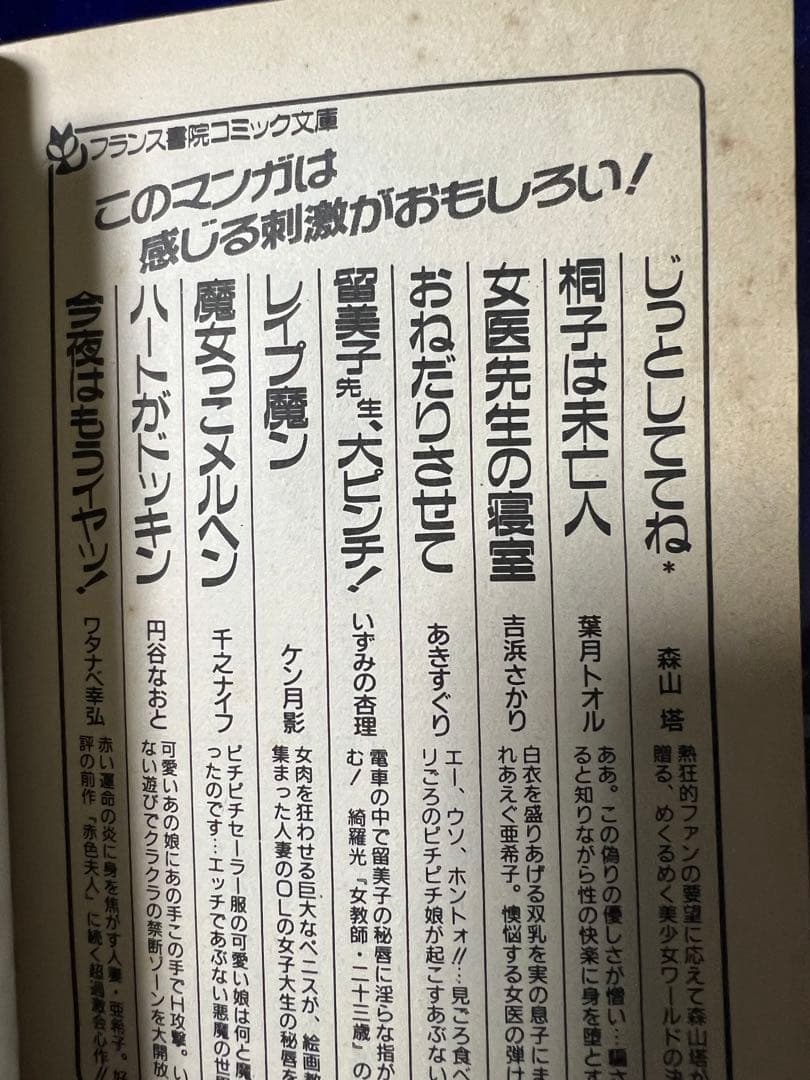 フランス書院コミック文庫
このマンガは
感じる刺激がおもしろい！
じっとしててね*
森山 塔
熱狂的ファンの要望に応えて森山塔が
贈る、めくるめく美少女ワールドの決
桐子は未亡人
葉月トオル
ああ。この偽りの優しさが憎い…騙さ
ると知りながら性の快楽に身を堕とす
女医先生の寝室
吉浜さかり
白衣を盛りあげる双乳を実の息子にま
れあえぐ亜希子。懊悩する女医の弾け
おねだりさせて
あきすぐり
エー、ウソ、ホントォ!!…見ごろ食べ
りごろのピチピチ娘が起こすあぶない
留美子先生、大ピンチ！
いずみの杏理
電車の中で留美子の秘唇に淫らな指が
む！ 綺羅光『女教師・二十三歳』の
レイプ魔ン
ケン月影
女肉を狂わせる巨大なペニスが、絵画教
集まった人妻のＯＬの女子大生の秘唇を
魔女っこメルヘン
千之ナイフ
ピチピチセーラー服の可愛い娘は何と魔
ったのです…エッチであぶない悪魔の世界
ハートがドッキン
円谷なおと
可愛いあの娘にあの手この手でＨ攻撃。い
ない遊びでクラクラの禁断ゾーンを大開放
今夜はもうイヤッ！
ワタナベ幸弘
赤い運命の炎に身を焦がす人妻・亜希子。好
評の前作『赤色夫人』に続く超過激会心作!!